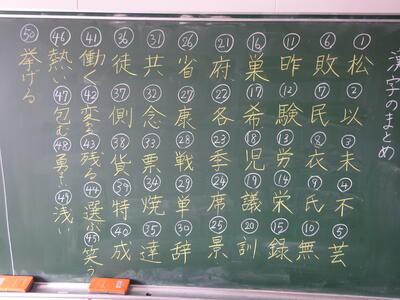 漢字のまとめ
①松 ②以 ③未 ④不 ⑤芸
⑥敗 ⑦民 ⑧衣 ⑨氏 ⑩無
⑪昨 ⑫験 ⑬労 ⑭栄 ⑮録
⑯巣 ⑰希 ⑱児 ⑲議 ⑳訓
㉑府 ㉒各 ㉓季 ㉔席 ㉕景
㉖省 ㉗康 ㉘戦 ㉙単 ㉚辞
㉛共 ㉜念 ㉝票 ㉞焼 ㉟達
㊱徒 ㊲側 ㊳貨 ㊴特 ㊵成
㊶働く ㊷ ㊸残る ㊹選ぶ ㊺笑う
㊻熱い ㊼包む ㊽ ㊾浅い
㊿挙げる